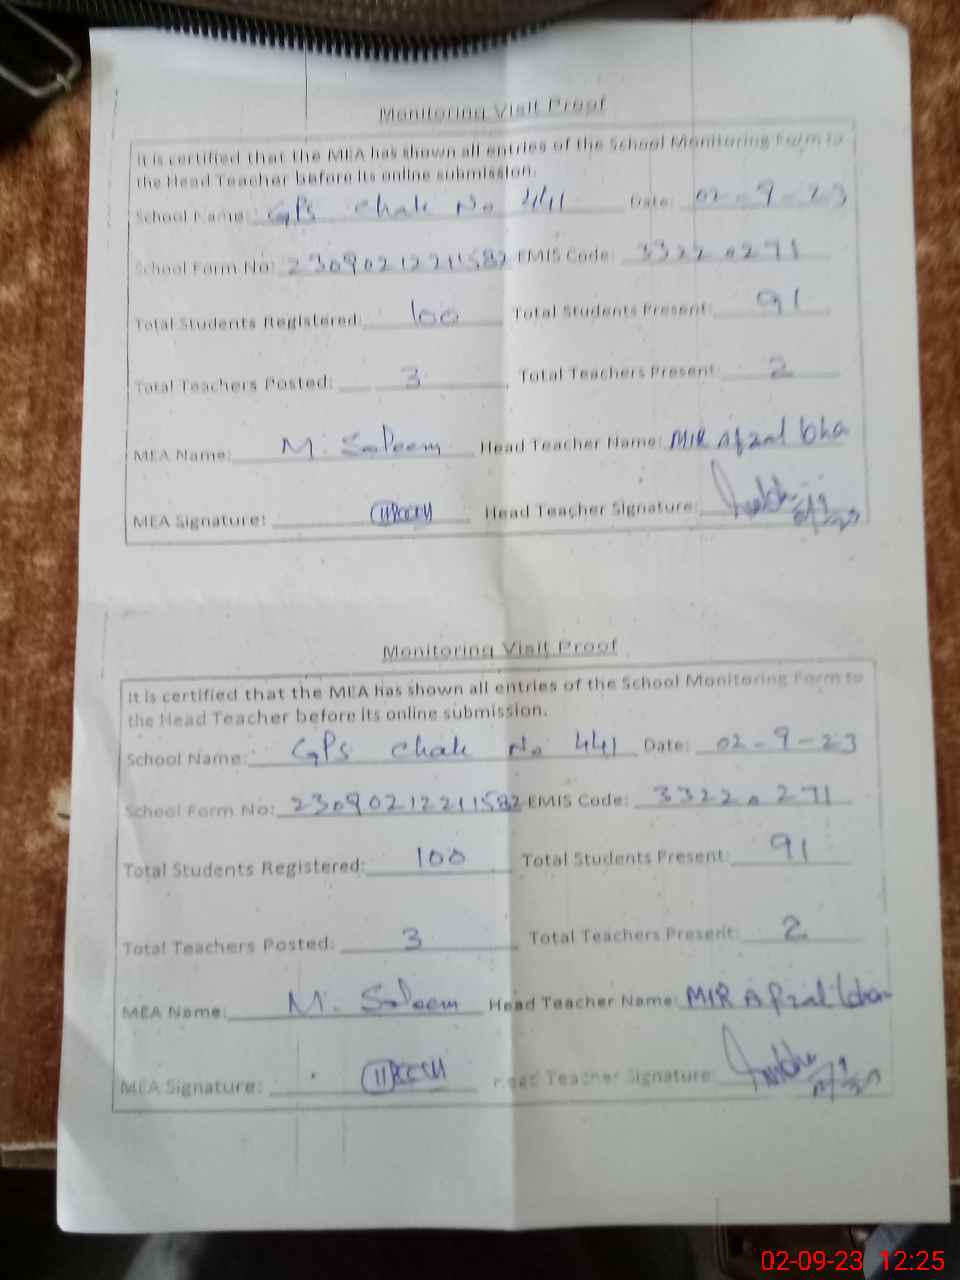 Monitoring Visit Proof
It is certified that the MEA has shown all entries of the School Monitoring Form to
the Head Teacher before its online submission.
School Name: GPS Chak No 441 Date: 02-9-23
School Form No: 230902122211582 EMIS Code: 33220271
Total Students Registered: 100 Total Students Present: 91
Total Teachers Posted: 3 Total Teachers Present: 2
MEA Name: M. Saleem Head Teacher Name: MIR Afzal
MEA Signature: Head Teacher Signature:
Monitoring Visit Proof
It is certified that the MEA has shown all entries of the School Monitoring Form to
the Head Teacher before its online submission.
School Name: GPS Chak No 441 Date: 02-9-23
School Form No: 230902122211582 EMIS Code: 33220271
Total Students Registered: 100 Total Students Present: 91
Total Teachers Posted: 3 Total Teachers Present: 2
MEA Name: M. Saleem Head Teacher Name: MIR Afzal
MEA Signature: Head Teacher Signature:
02-09-23 12:25